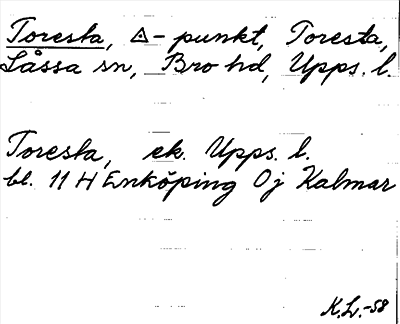 Toresta, △-punkt, Toresta,
Låssa sn, Bro hd, Upps. l.
Toresta, ek. Upps. l.
bl. 11 H Enköping Oj Kalmar
K.L.-58